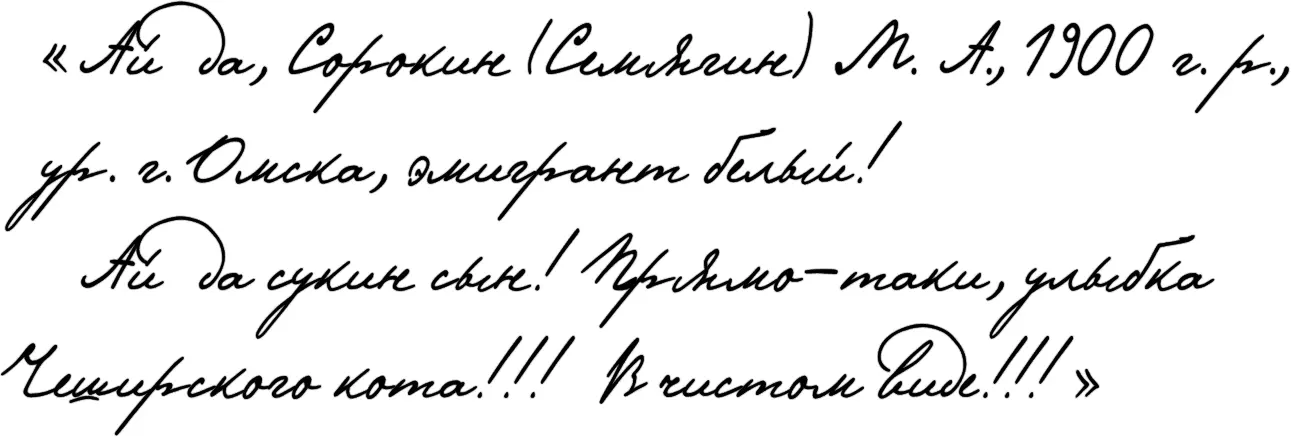 «Ай да, Сорокин (Семлягин) М. А., 1900 г. р.,
ур. г. Омска, эмигрант белый!
Ай да сукин сын! Прямо-таки, улыбка
Чеширского кота!!! В чистом виде!!!»